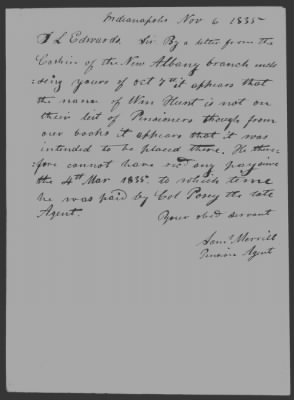 Indianapolis Nov 6 1835
J L Edwards. Sir By a letter from the
Cashier of the New Albany branch enclo
:sing yours of oct 7th it appears that
the name of Wm Hunt is not on
their list of Pensioners though from
our books it appears that it was
intended to be placed there. He there
fore cannot have recd any pay since
the 4th Mar 1835. to which time
he was paid by Col Posey the late
Agent.
Your obed servant
Saml Merrill
Pension Agent